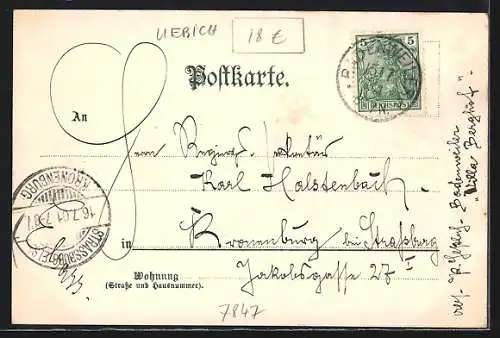 UEBICH
18 €
Postkarte.
5 5
REICHSPOST
BADENWEILER
An
Herrn
Karl Halstenbach
in Kronenburg bei Straßburg
Jakobsgasse 27 I
Wohnung
(Straße und Hausnummer).
STRASSBURG
KRONENBURG
16.7.01
7847
Badenweiler
"Villa Berghof"